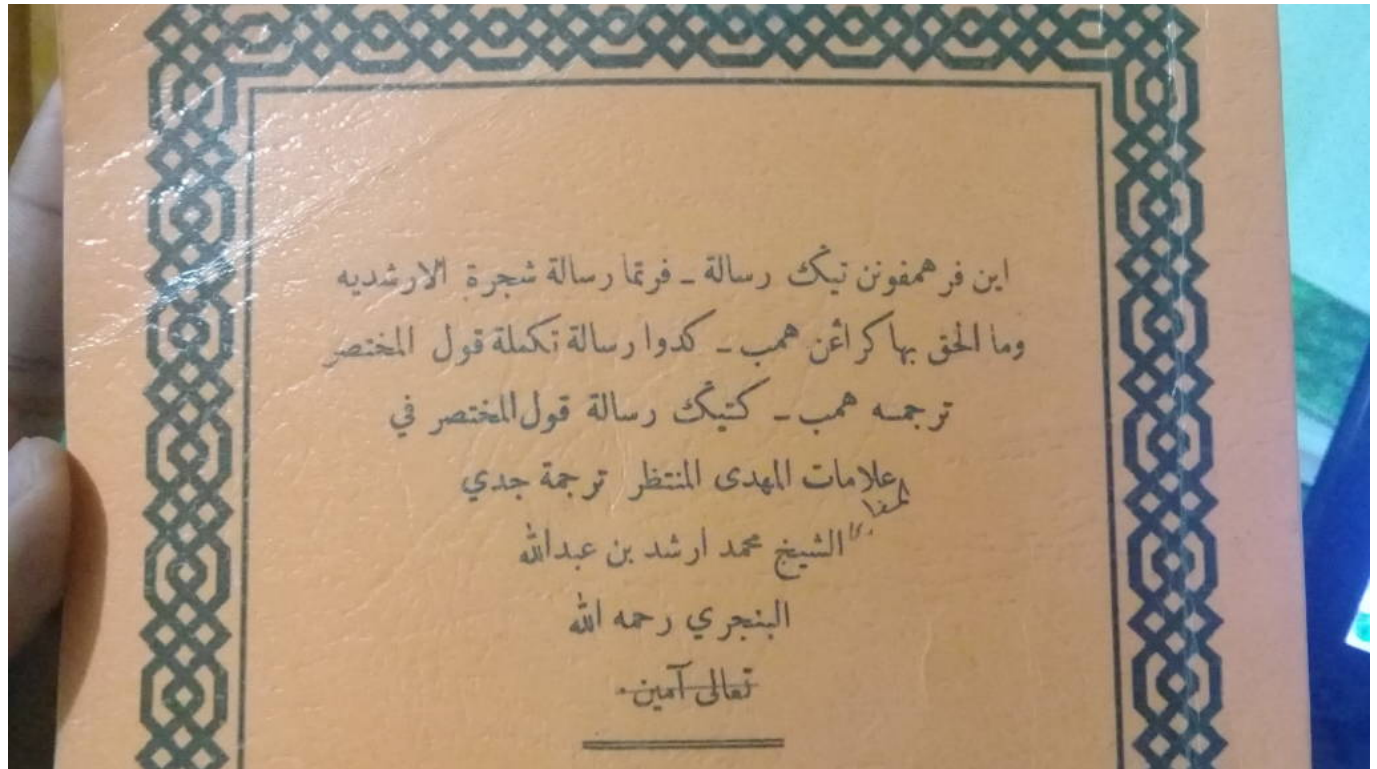 اين فر همفونن تيݢ رسالة ـ فرتما رسالة شجرة الارشديه
وما الحق بها كراڠن همب ـ كدوا رسالة تكملة قول المختصر
ترجمه همب ـ كتيݢ رسالة قول المختصر في
علامات المهدى المنتظر ترجمة جدي
الشيخ محمد ارشد بن عبدالله
البنجري رحمه الله
تعالى آمين.